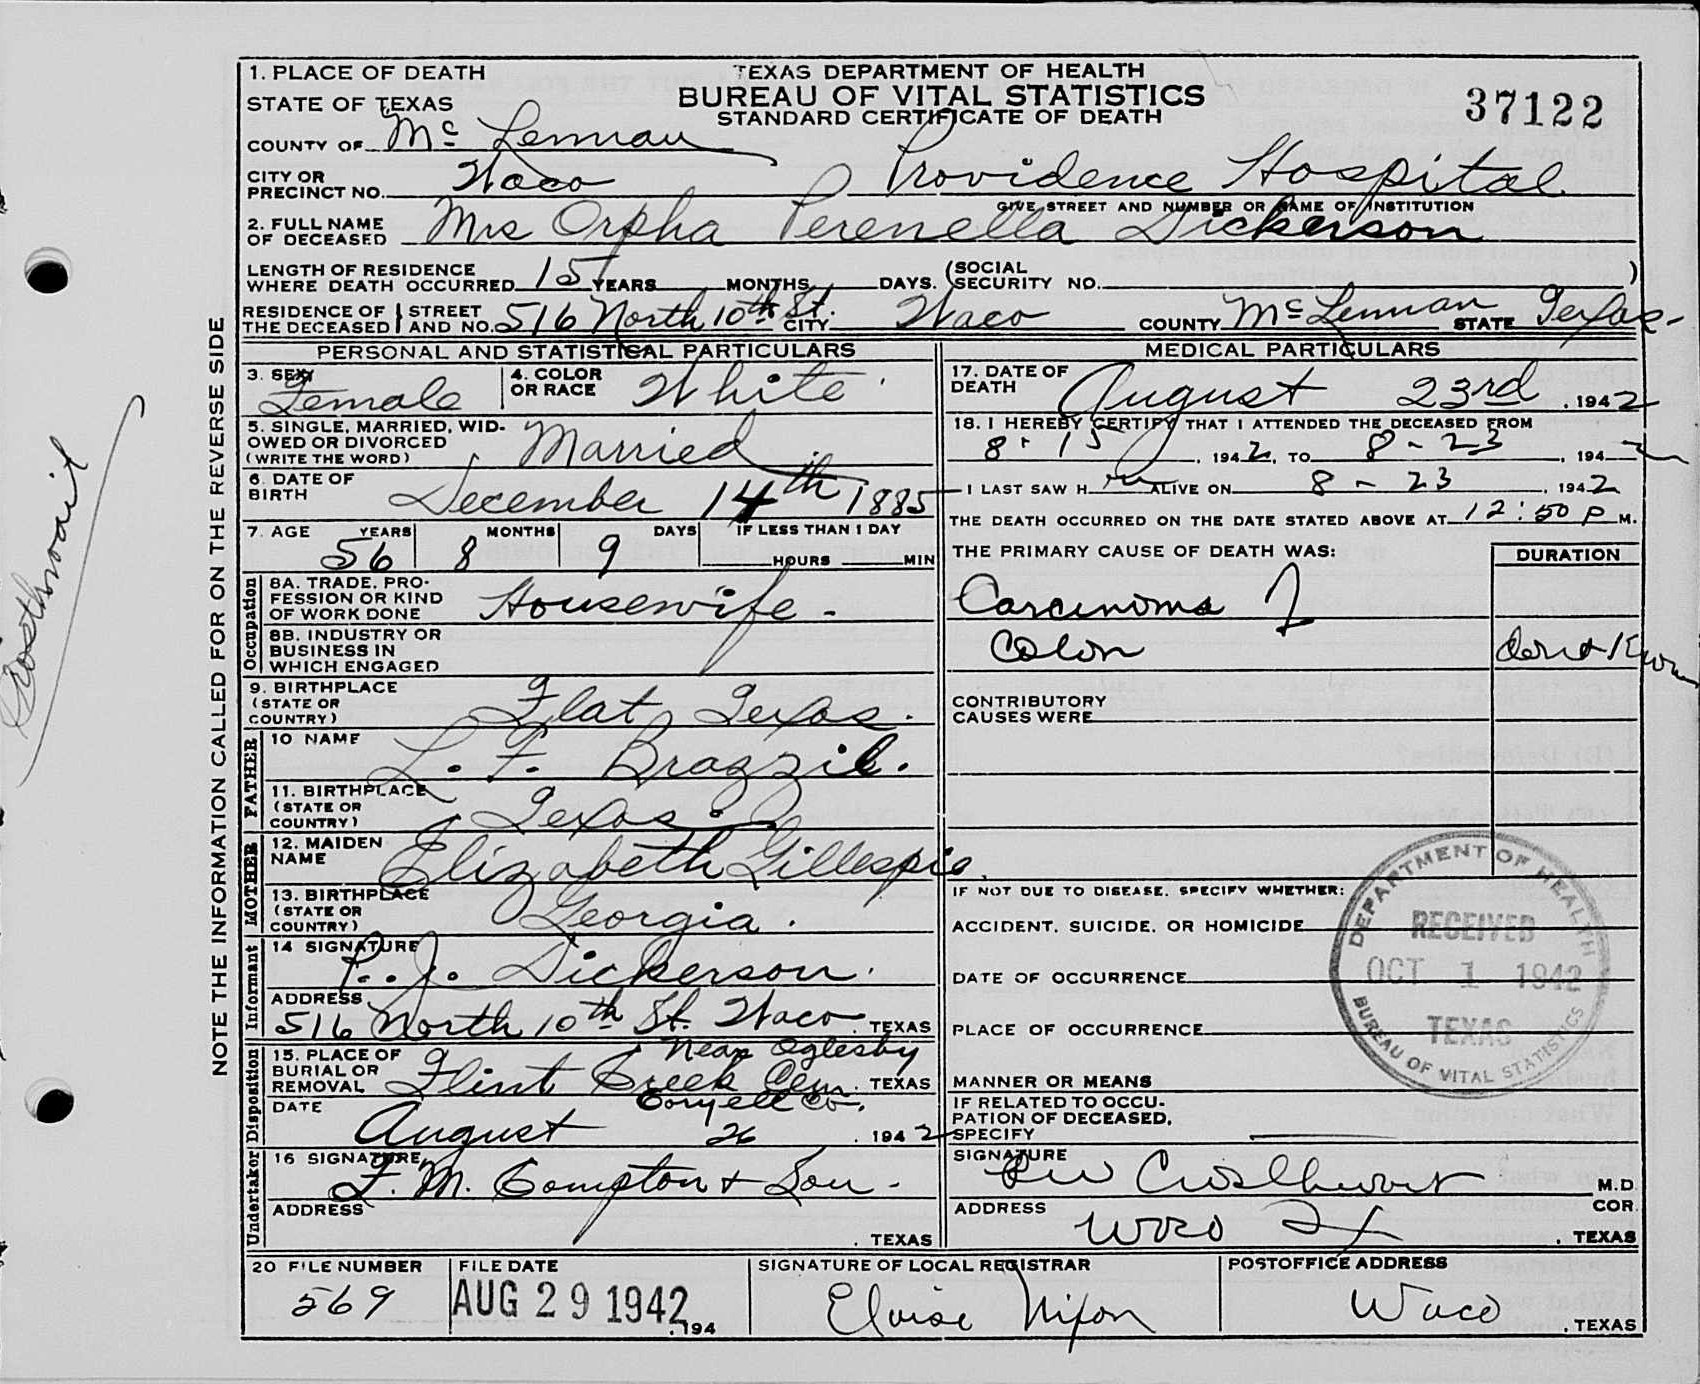 TEXAS DEPARTMENT OF HEALTH
BUREAU OF VITAL STATISTICS
STANDARD CERTIFICATE OF DEATH
37122
1. PLACE OF DEATH
STATE OF TEXAS
COUNTY OF Mc Lennan
CITY OR PRECINCT NO. Waco Providence Hospital
GIVE STREET AND NUMBER OR NAME OF INSTITUTION
2. FULL NAME OF DECEASED Mrs Orpha Perenella Dickerson
LENGTH OF RESIDENCE WHERE DEATH OCCURRED 15 YEARS MONTHS DAYS. (SOCIAL SECURITY NO. )
RESIDENCE OF THE DECEASED STREET AND NO. 516 North 10th St. CITY Waco COUNTY Mc Lennan STATE Texas
PERSONAL AND STATISTICAL PARTICULARS
3. SEX Female
4. COLOR OR RACE White
5. SINGLE, MARRIED, WIDOWED OR DIVORCED (WRITE THE WORD) Married
6. DATE OF BIRTH December 14th 1885
7. AGE YEARS 56 MONTHS 8 DAYS 9 IF LESS THAN 1 DAY HOURS MIN
Occupation
8A. TRADE, PROFESSION OR KIND OF WORK DONE Housewife -
8B. INDUSTRY OR BUSINESS IN WHICH ENGAGED
9. BIRTHPLACE (STATE OR COUNTRY) Flat, Texas.
FATHER
10 NAME L. F. Brazzil.
11. BIRTHPLACE (STATE OR COUNTRY) Texas.
MOTHER
12. MAIDEN NAME Elizabeth Gillespie.
13. BIRTHPLACE (STATE OR COUNTRY) Georgia.
Informant
14 SIGNATURE P. J. Dickerson.
ADDRESS 516 North 10th St. Waco. TEXAS
Disposition
15. PLACE OF BURIAL OR REMOVAL Flint Creek Cem. Near Oglesby Coryell Co. TEXAS
DATE August 26 . 1942
Undertaker
16 SIGNATURE F. M. Compton + Son.
ADDRESS . TEXAS
MEDICAL PARTICULARS
17. DATE OF DEATH August 23rd . 1942
18. I HEREBY CERTIFY THAT I ATTENDED THE DECEASED FROM
8-15, 1942, TO 8-23, 1942
I LAST SAW H er ALIVE ON 8-23, 1942
THE DEATH OCCURRED ON THE DATE STATED ABOVE AT 12:50 P M.
THE PRIMARY CAUSE OF DEATH WAS: DURATION
Carcinoma of
Colon dont Know
CONTRIBUTORY CAUSES WERE
IF NOT DUE TO DISEASE, SPECIFY WHETHER:
ACCIDENT, SUICIDE, OR HOMICIDE
DATE OF OCCURRENCE
PLACE OF OCCURRENCE
MANNER OR MEANS
IF RELATED TO OCCUPATION OF DECEASED, SPECIFY
SIGNATURE M.D. COR.
ADDRESS Waco Tx . TEXAS
DEPARTMENT OF HEALTH
RECEIVED
OCT 1 1942
TEXAS
BUREAU OF VITAL STATISTICS
20 FILE NUMBER 569
FILE DATE AUG 29 1942 , 194
SIGNATURE OF LOCAL REGISTRAR Eloise Nixon
POSTOFFICE ADDRESS Waco . TEXAS
NOTE THE INFORMATION CALLED FOR ON THE REVERSE SIDE